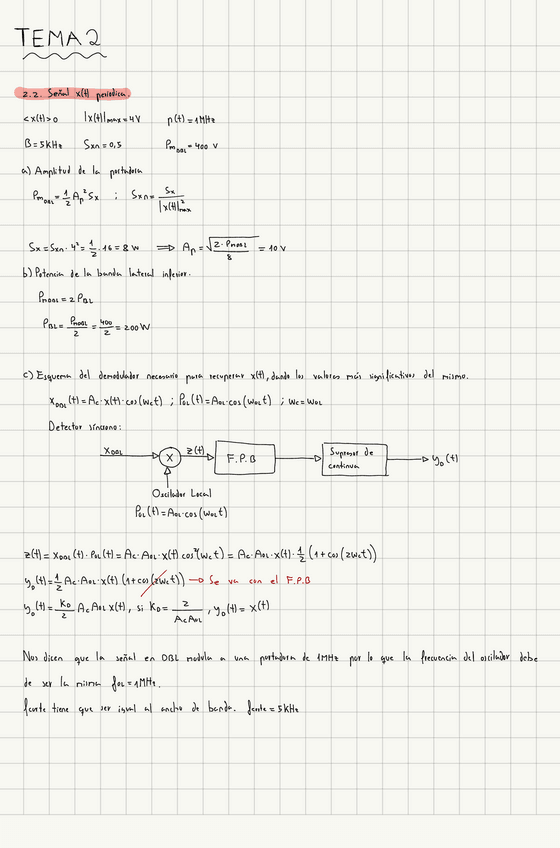 TEMA 2
2.2. Señal x(t) periodica.
<x(t)>0 |x(t)|max=4V p(t)=1MHz
B=5kHz Sxn=0,5 PmDBL=400 V
a) Amplitud de la portadora
PmDBL=1/2 Ap² Sx ; Sxn= Sx/|x(t)|²max
Sx=Sxn·4²=1/2·16=8 W ⟹ Ap=√(2·PmDBL/8) = 10 V
b) Potencia de la banda lateral inferior.
PmDBL = 2 PBL
PBL= PmDBL/2 = 400/2 = 200 W
c) Esquema del demodulador necesario para recuperar x(t), dando los valores más significativos del mismo.
xDBL(t)=Ac·x(t)·cos(wct) ; POL(t)=AOL·cos(wOLt) ; wc=wOL
Detector síncrono:
XDBL X z(t) F.P.B Supresor de continua yD(t)
Oscilador Local
POL(t)=AOL·cos(wOLt)
z(t)=xDBL(t)·POL(t)=Ac·AOL·x(t)·cos²(wct)=Ac·AOL·x(t)·1/2(1+cos(2wct))
yD(t)=1/2 Ac·AOL·x(t)(1+cos(2wct)) → Se va con el F.P.B
yD(t)= KD/2 AcAOL x(t), si KD= 2/AcAOL , yD(t)=x(t)
Nos dicen que la señal en DBL modula a una portadora de 1MHz por lo que la frecuencia del oscilador debe
de ser la misma fOL=1MHz.
fcorte tiene que ser igual al ancho de banda. fcorte=5kHz